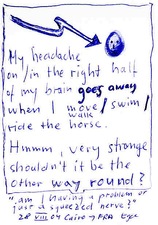 My headache
on/in the right half
of my brain goes away
when I move / swim /
walk
ride the horse.
Hmmm, very strange
shouldn't it be the
other way round?
"am I having a problem or
just a squeezed nerve?"
28 VIII 04 Cairo → FRA